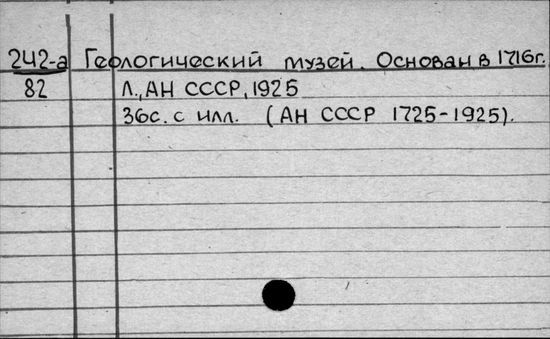 242-а Геологический музей. Основан в 1716г.
82 Л., АН СССР, 1925
36с. с илл. (АН СССР 1725-1925).